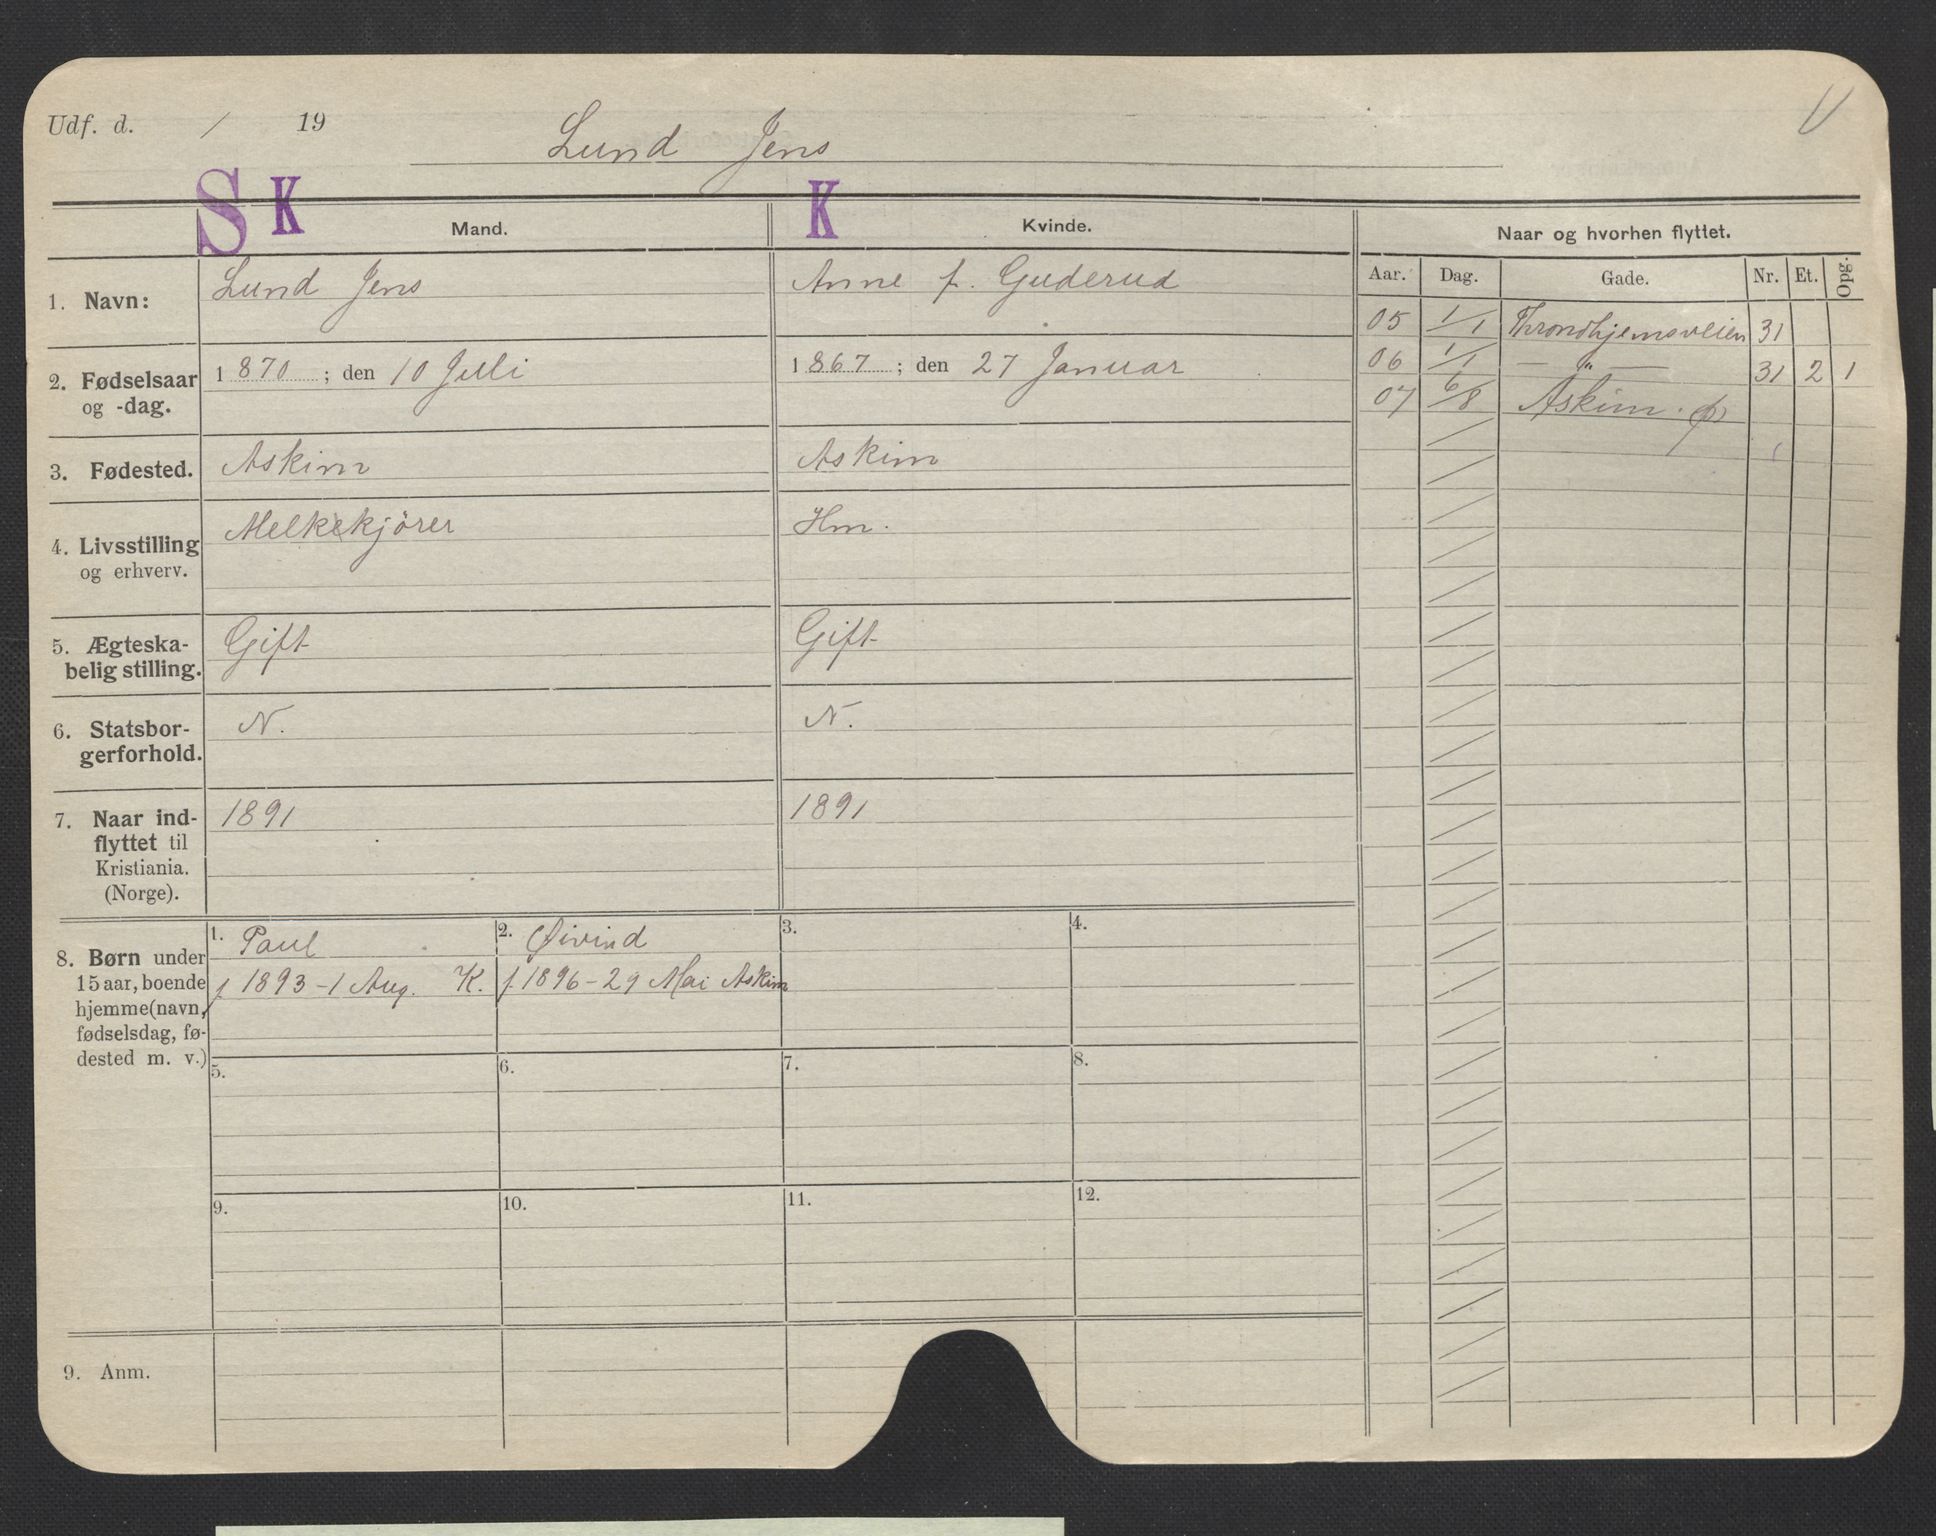 Udf. d. / 19
Lund Jens
S K K
Mand. Kvinde. Naar og hvorhen flyttet.
Aar. Dag. Gade. Nr. Et. Opg.
1. Navn: Lund Jens Anne f. Guderud
05 1/1 Throndhjemsveien 31
06 1/1 — " — 31 2 1
07 6/8 Askim.
2. Fødselsaar og -dag. 1870; den 10 Juli 1867; den 27 Januar
3. Fødested. Askim Askim
4. Livsstilling og erhverv. Melkekjörer Hm.
5. Ægteska-
belig stilling. Gift Gift
6. Statsbor-
gerforhold. N. N.
7. Naar ind-
flyttet til
Kristiania.
(Norge). 1891 1891
8. Børn under
15 aar, boende
hjemme (navn,
fødselsdag, fø-
dested m. v.)
1. Paul
f 1893 - 1 Aug. K.
2. Øivind
f. 1896 - 29 Mai Askim
3.
4.
5.
6.
7.
8.
9.
10.
11.
12.
9. Anm.